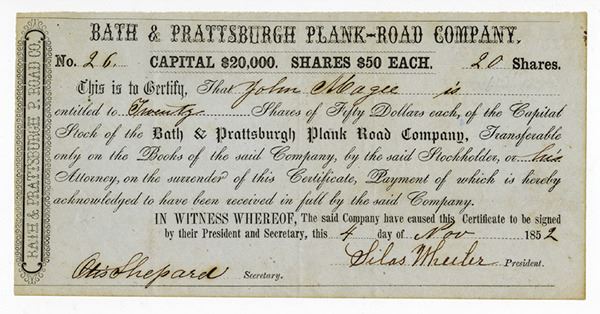 BATH & PRATTSBURGH PLANK-ROAD COMPANY.
No. 26. CAPITAL $20,000. SHARES $50 EACH. 20 Shares.
This is to Certify, That John Magee is
entitled to Twenty Shares of Fifty Dollars each, of the Capital
Stock of the Bath & Prattsburgh Plank Road Company, Transferable
only on the Books of the said Company, by the said Stockholder, or his
Attorney, on the surrender of this Certificate, Payment of which is hereby
acknowledged to have been received in full by the said Company.
IN WITNESS WHEREOF, The said Company have caused this Certificate to be signed
by their President and Secretary, this 4 day of Nov 1852
Otis Shepard Secretary. Silas Wheeler President.
BATH & PRATTSBURGH P. ROAD CO.